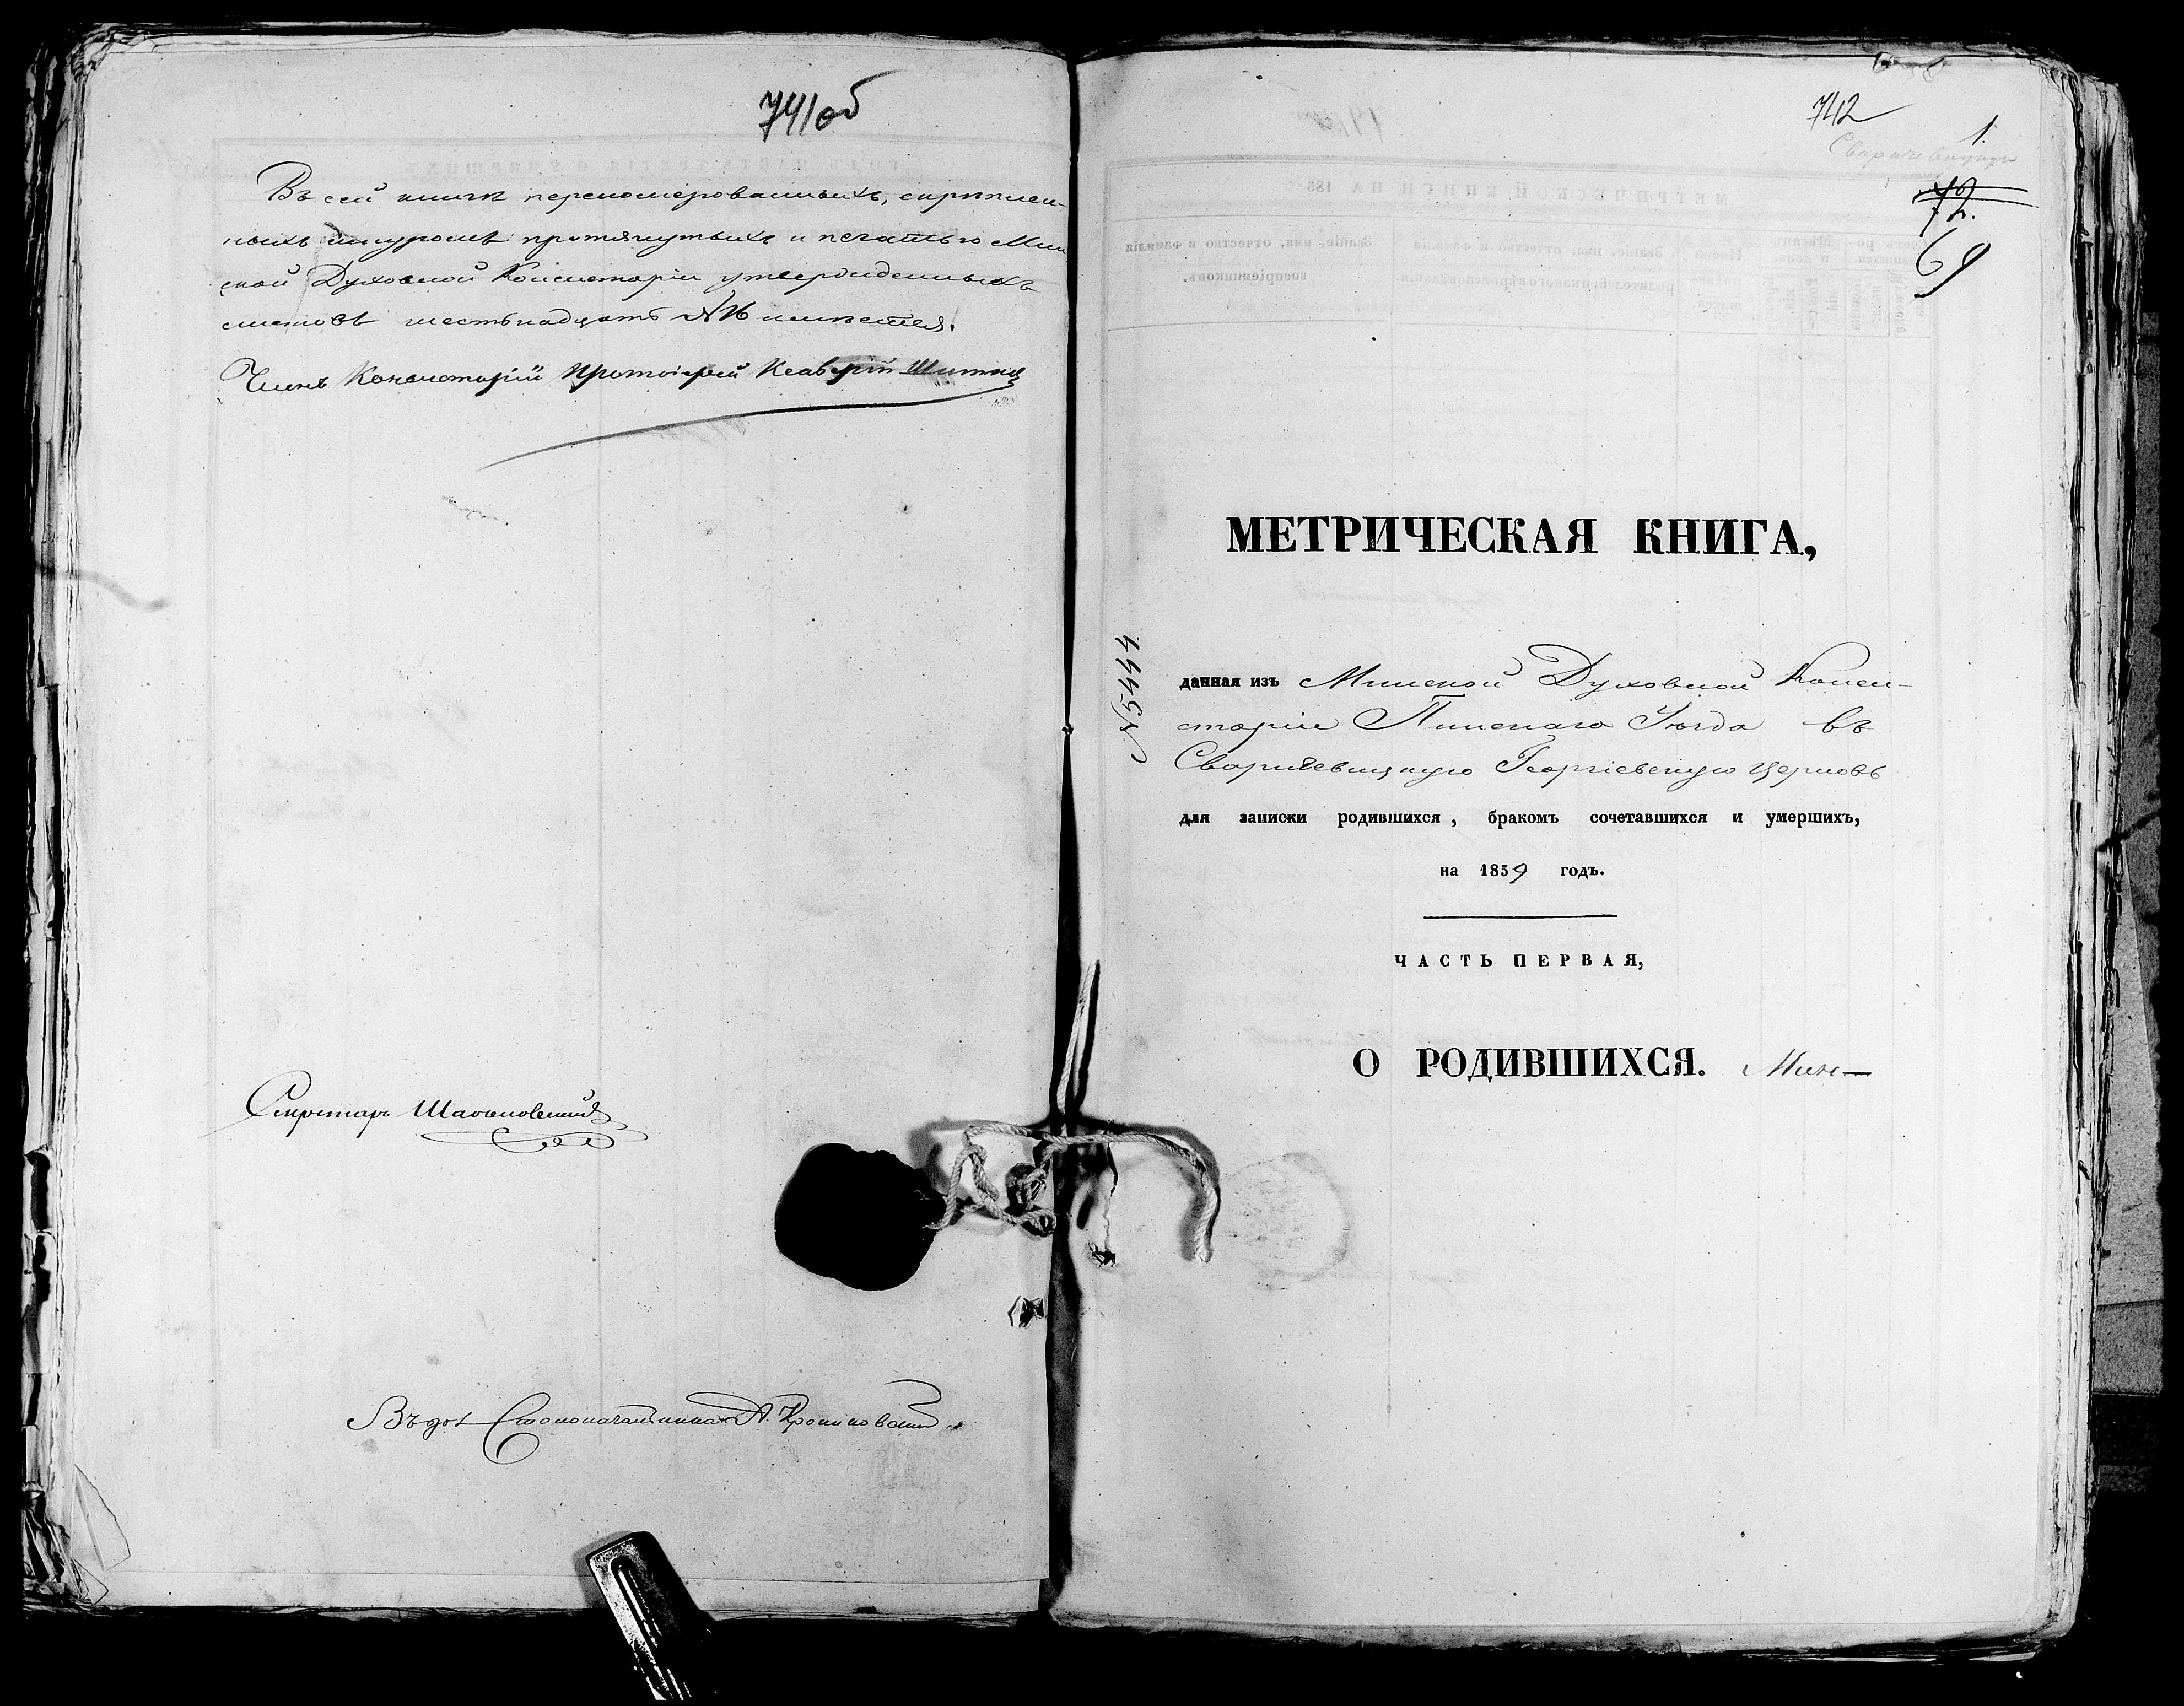 741об
Въ сей книгѣ перенумерованныхъ, скрѣплен-
ныхъ шнуромъ протянутыхъ и печатью Мин
ской Духовной Консисторіи утвержденныхъ
листовъ шестьнадцать №16 имѣется.
Членъ Консисторіи Протоіерей
Секретарь
Столоначальника
742
1.
Сваричевичи
72.
69
МЕТРИЧЕСКАЯ КНИГА,
№5444
данная изъ Минской Духовной Консис-
торіи Пинскаго Уѣзда въ
Сваричевицкую Георгіевскую церковь
для записки родившихся, бракомъ сочетавшихся и умершихъ,
на 1859 годъ.
ЧАСТЬ ПЕРВАЯ,
О РОДИВШИХСЯ.